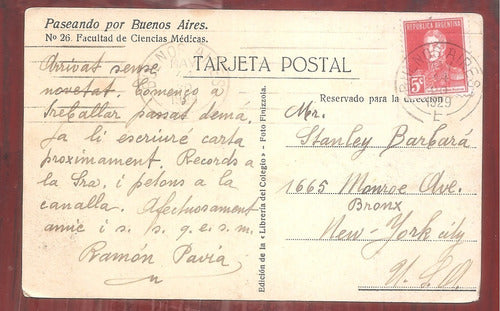 Paseando por Buenos Aires.
No 26. Facultad de Ciencias Médicas.
TARJETA POSTAL
Arrivat sense
novetat. Començo a
treballar passat demá,
ja li escriuré carta
proximament. Records a
la Sra. i petons a la
canalla. Afectuosament
amic i s. s. q. e. s. m.
Ramón Pavia
Edición de la «Librería del Colegio» - Foto Finizzola.
REPUBLICA ARGENTINA
5
BUENOS AIRES
1929
E
Reservado para la dirección
Mr.
Stanley Barbará
1665 Monroe Ave.
Bronx
New-York city
U.S.A.